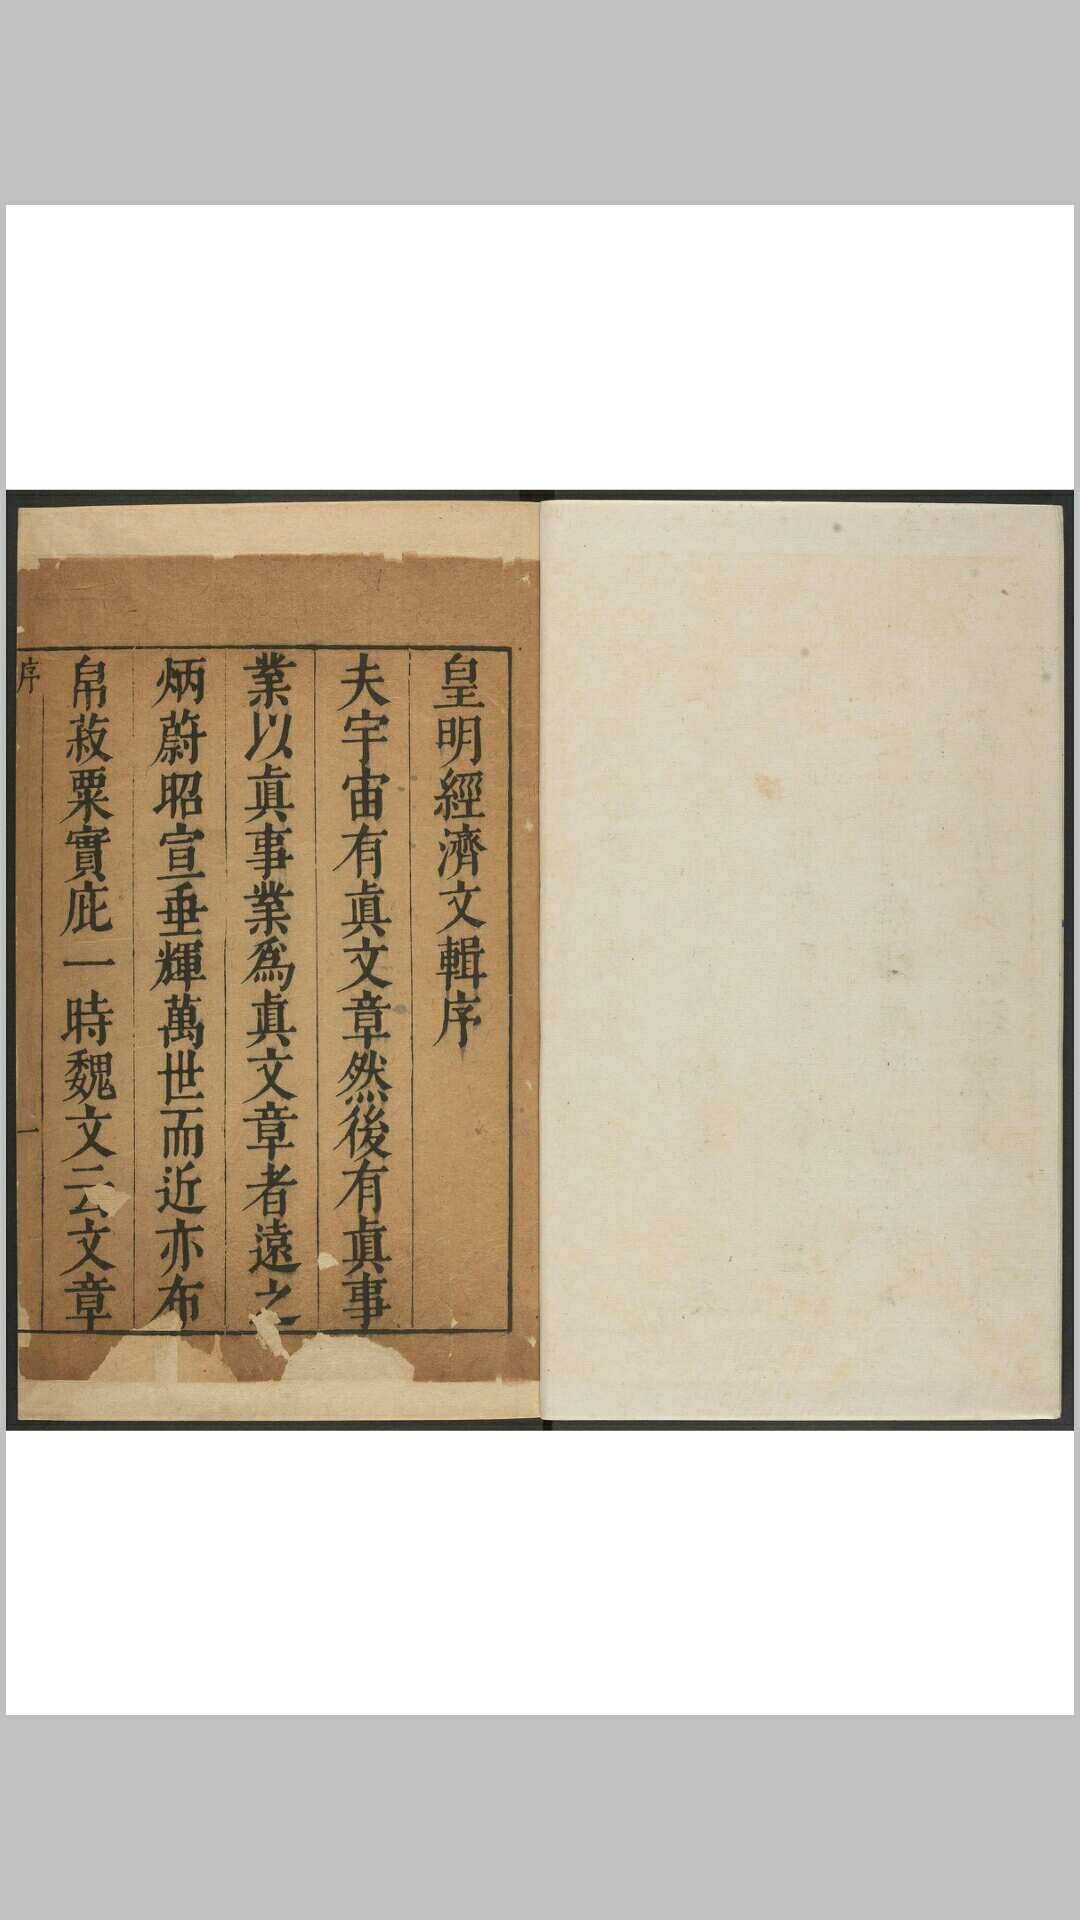 皇明經濟文輯序
夫宇宙有眞文章然後有眞事
業以眞事業爲眞文章者遠之
炳蔚昭宣垂輝萬世而近亦布
帛菽粟實庇一時魏文云文章
序
一